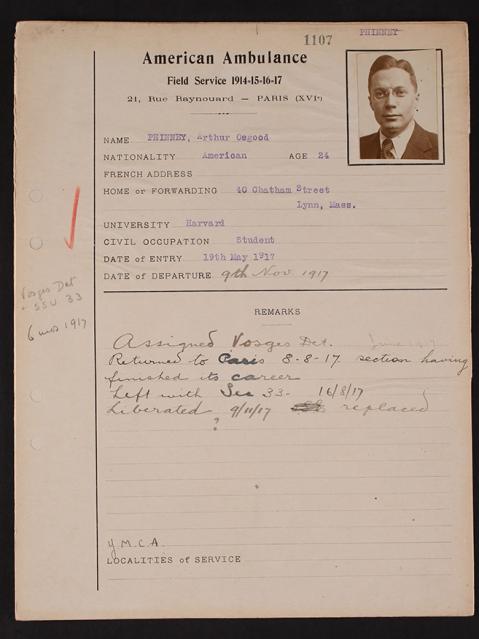 1107
PHINNEY
American Ambulance
Field Service 1914-15-16-17
21, Rue Raynouard — PARIS (XVIe)
NAME PHINNEY, Arthur Osgood
NATIONALITY American AGE 24
FRENCH ADDRESS
HOME or FORWARDING 40 Chatham Street
Lynn, Mass.
UNIVERSITY Harvard
CIVIL OCCUPATION Student
DATE of ENTRY 19th May 1917
DATE of DEPARTURE 9th Nov 1917
Vosges Det
+ SSU 33
6 mos 1917
REMARKS
Assigned Vosges Det.
Returned to Paris 8-8-17 section having
finished its career
Left with Sec 33- 16/8/17
Liberated 9/11/17 replaced
?
Y.M.C.A.
LOCALITIES of SERVICE